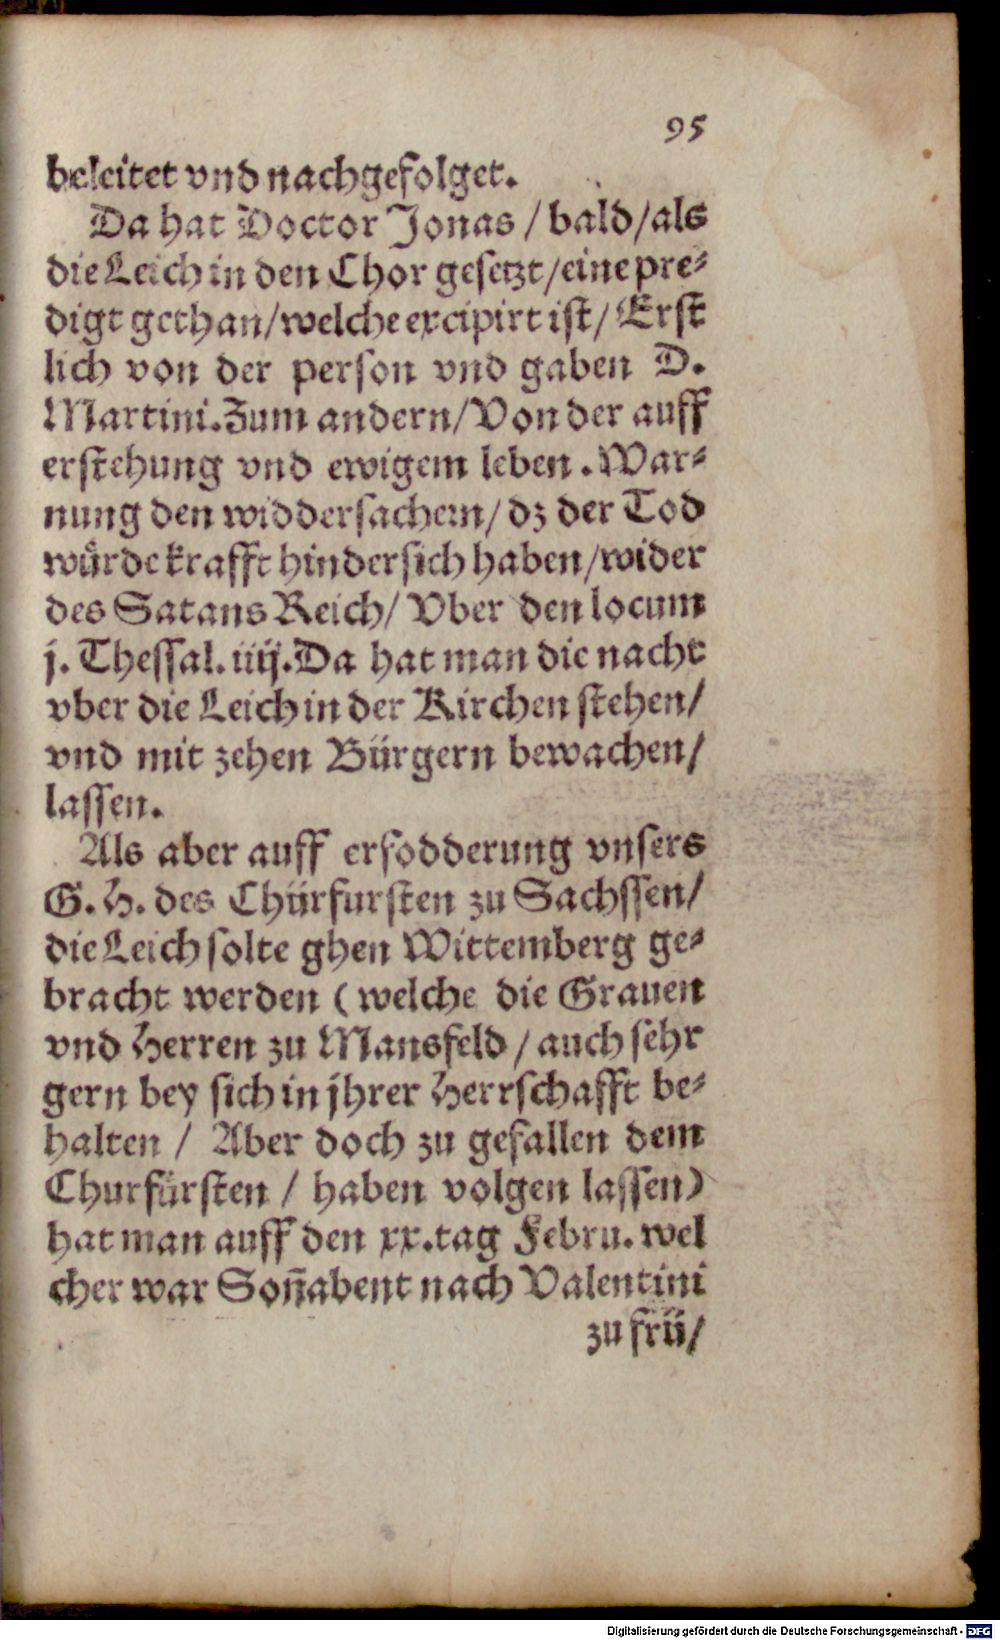 95
beleitet vnd nachgefolget.
Da hat Doctor Jonas / bald / als
die Leich in den Chor gesetzt / eine pre⸗
digt gethan / welche excipirt ist / Erst
lich von der person vnd gaben D.
Martini. Zum andern / Von der auff
erstehung vnd ewigem leben. War⸗
nung den widdersachern / dz der Tod
würde krafft hindersich haben / wider
des Satans Reich / Vber den locum
j. Thessal. iiij. Da hat man die nacht
vber die Leich in der Kirchen stehen /
vnd mit zehen Bürgern bewachen /
lassen.
Als aber auff erfodderung vnsers
G. H. des Chürfursten zu Sachssen /
die Leich solte ghen Wittemberg ge⸗
bracht werden ( welche die Grauen
vnd Herren zu Mansfeld / auch sehr
gern bey sich in jhrer Herrschafft be⸗
halten / Aber doch zu gefallen dem
Churfürsten / haben volgen lassen )
hat man auff den xx. tag Febru. wel
cher war Soñabent nach Valentini
zu frü /
Digitalisierung gefördert durch die Deutsche Forschungsgemeinschaft - DFG